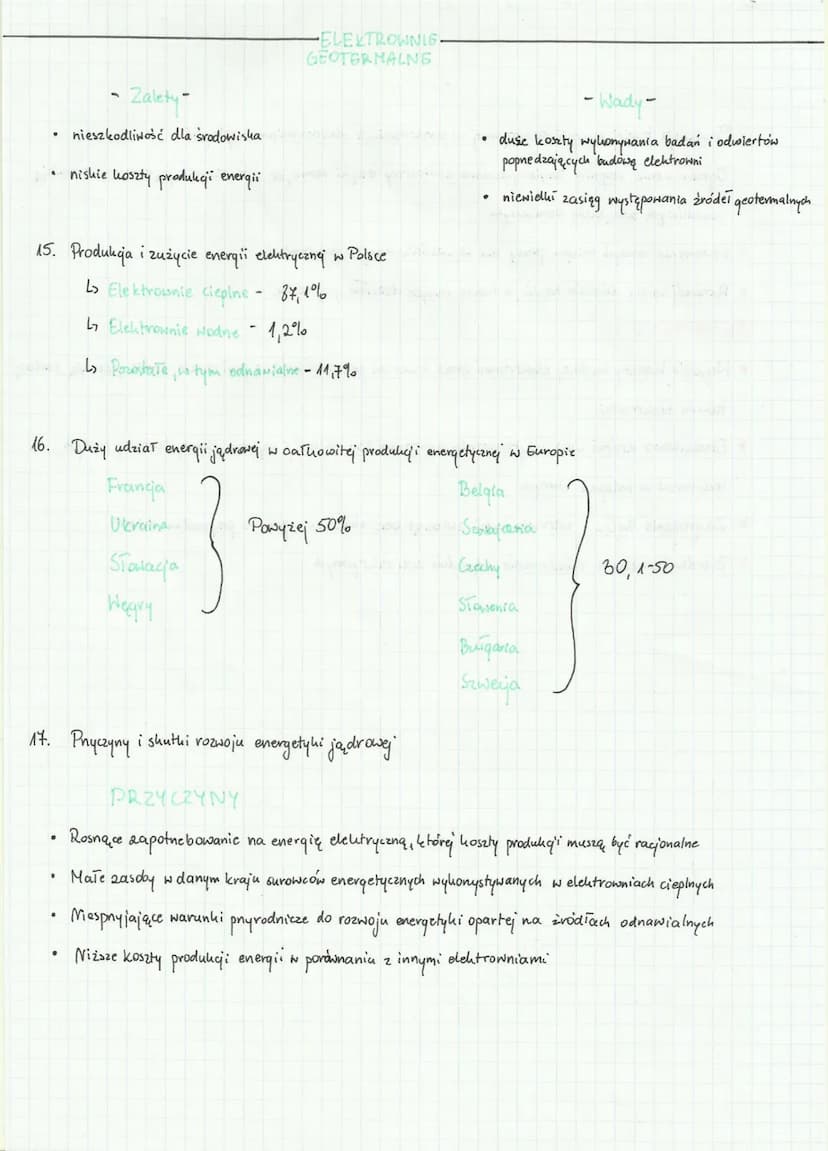 ELEKTROWNIE
GEOTERMALNE
- Zalety -
• nieszkodliwość dla środowiska
• niskie koszty produkcji energii
- Wady -
• duże koszty wykonywania badań i odwiertów
poprzedzających budowę elektrowni
• niewielki zasięg występowania źródeł geotermalnych
15. Produkcja i zużycie energii elektrycznej w Polsce
↳ Elektrownie cieplne - 87,1%
↳ Elektrownie wodne - 1,2%
↳ Pozostałe, w tym odnawialne - 11,7%
16. Duży udział energii jądrowej w całkowitej produkcji energetycznej w Europie
Francja
Ukraina
Słowacja
Węgry
Powyżej 50%
Belgia
Szwajcaria
Czechy
Słowenia
Bułgaria
Szwecja
30,1-50
17. Przyczyny i skutki rozwoju energetyki jądrowej
PRZYCZYNY
• Rosnące zapotrzebowanie na energię elektryczną, której koszty produkcji muszą być racjonalne
• Małe zasoby w danym kraju surowców energetycznych wykorzystywanych w elektrowniach cieplnych
• Niesprzyjające warunki przyrodnicze do rozwoju energetyki opartej na źródłach odnawialnych
• Niższe koszty produkcji energii w porównaniu z innymi elektrowniami